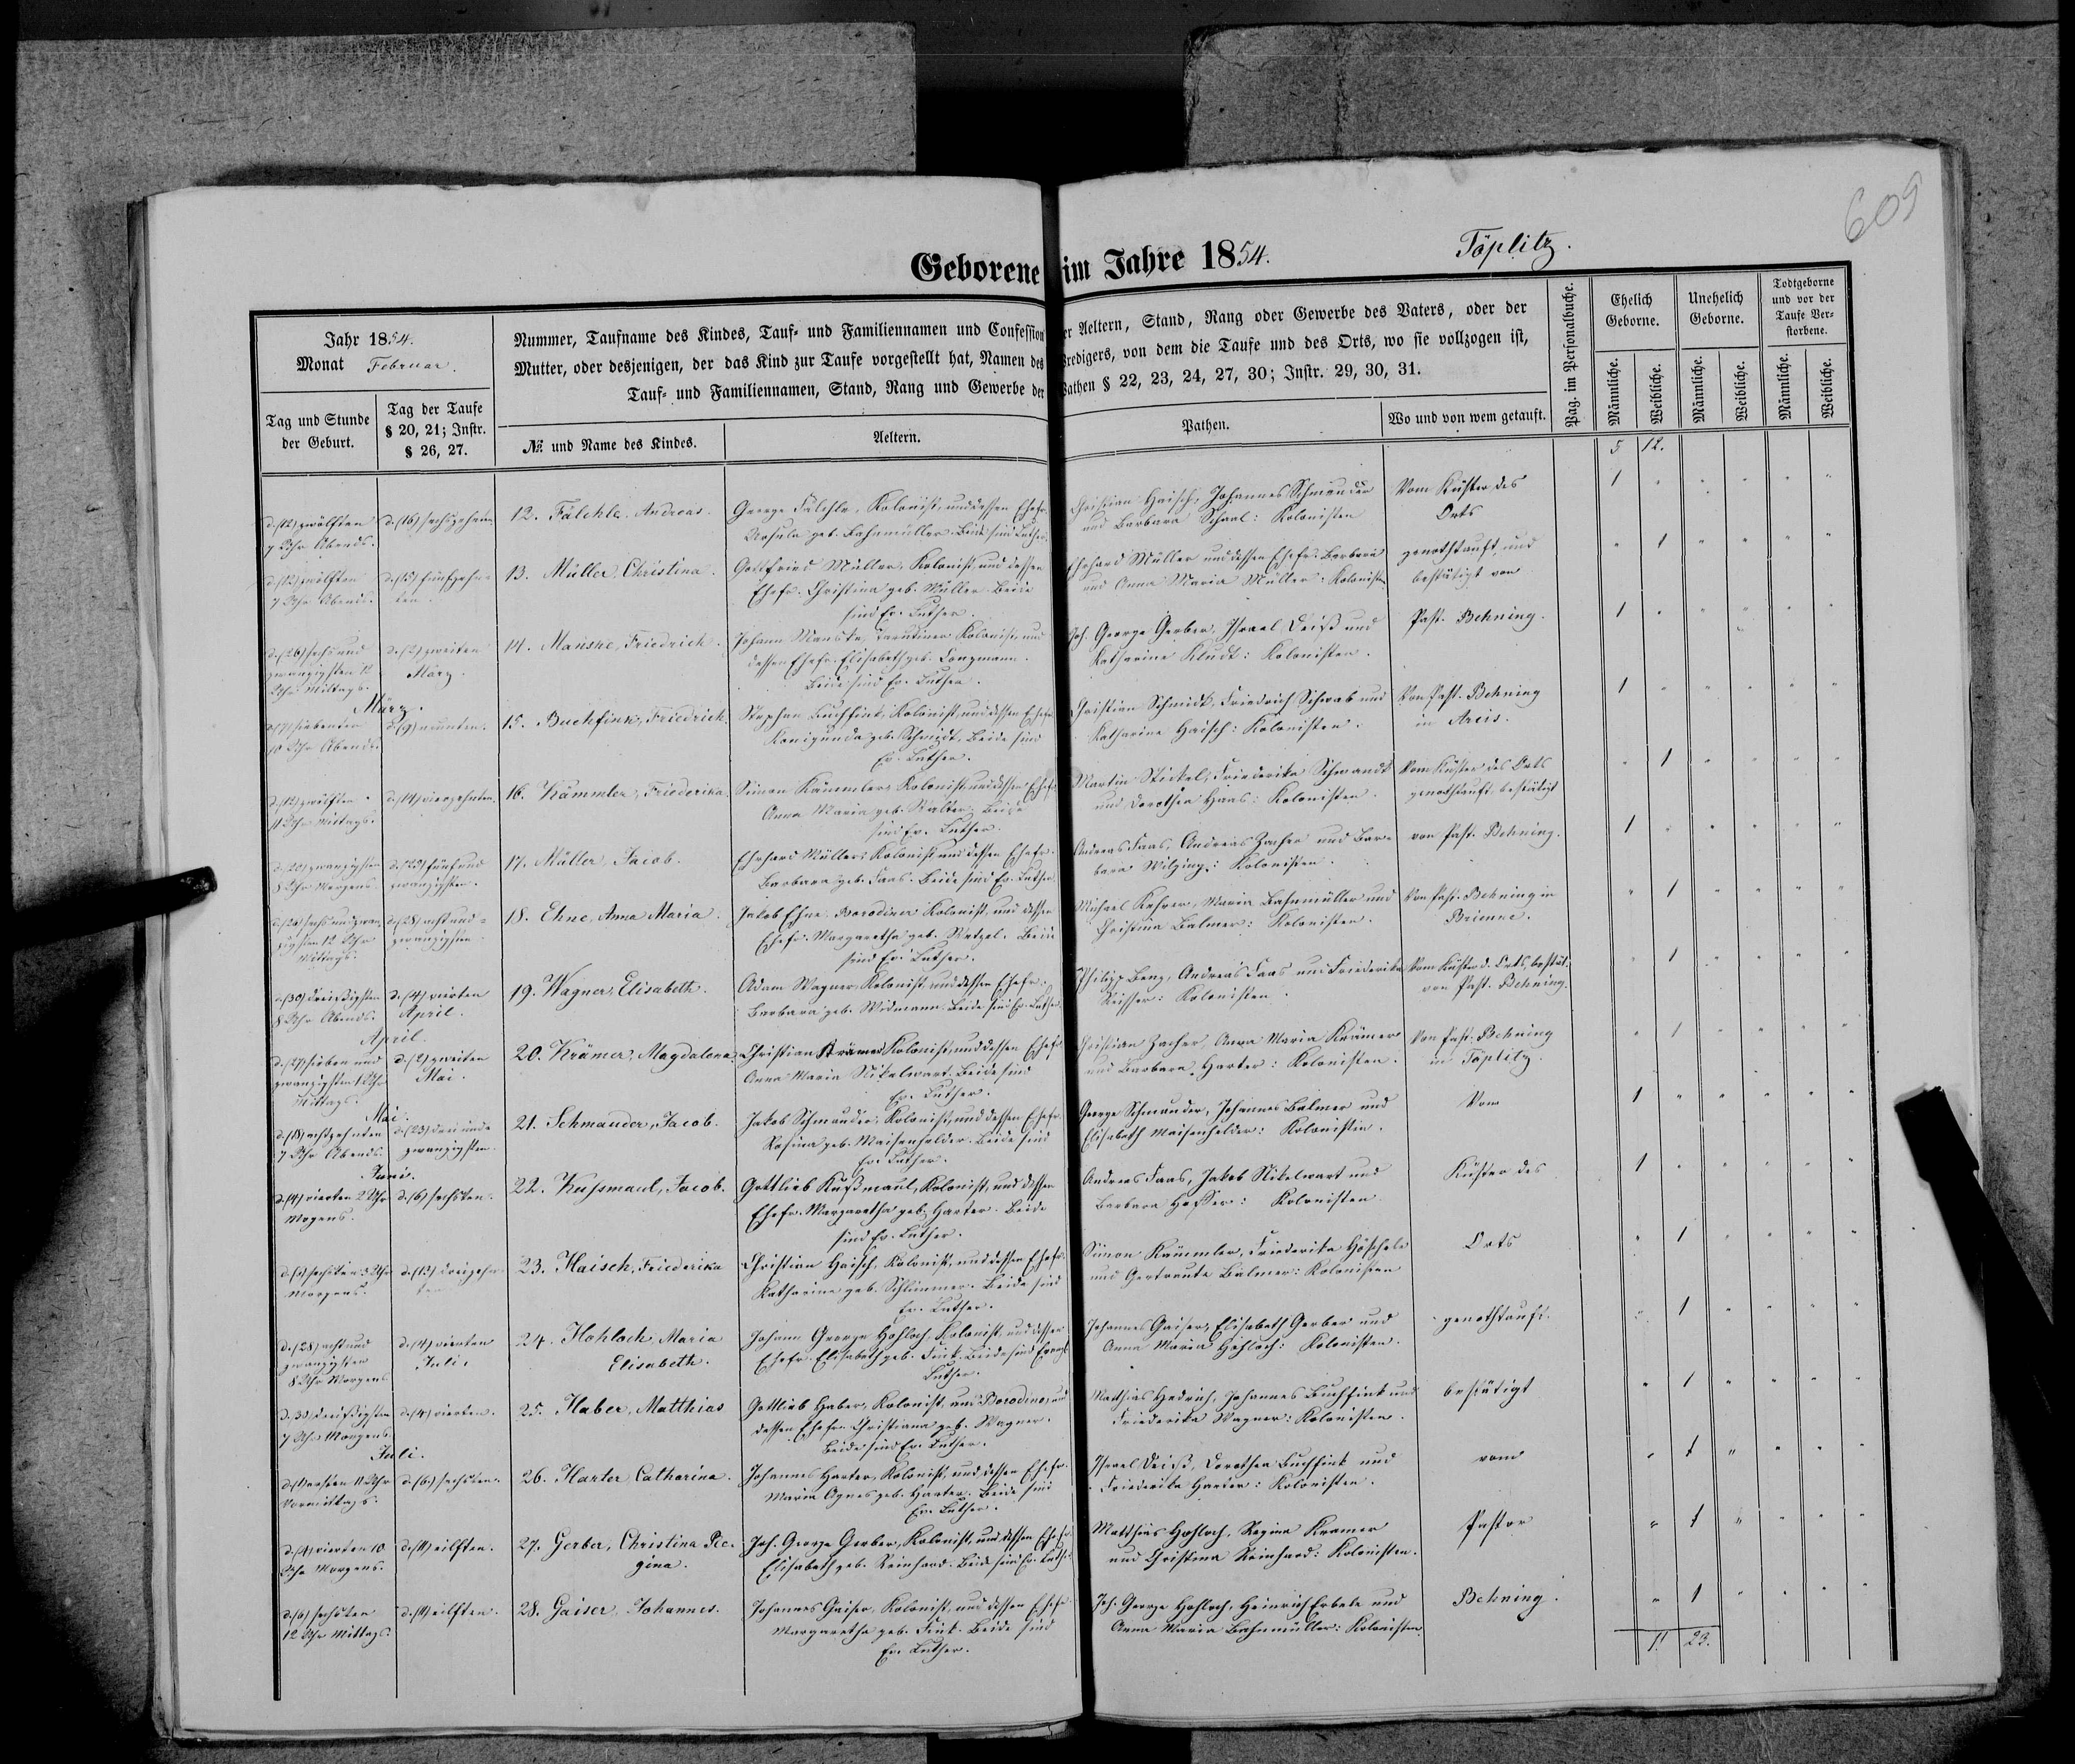 609
Geborene im Jahre 1854.
Töplitz.
Jahr 1854.
Monat Februar.
Tag und Stunde der Geburt.
Tag der Taufe § 20, 21; Instr. § 26, 27.
Nummer, Taufname des Kindes, Tauf- und Familiennamen und Confession der Aeltern, Stand, Rang oder Gewerbe des Vaters, oder der
Mutter, oder desjenigen, der das Kind zur Taufe vorgestellt hat, Namen des Predigers, von dem die Taufe und des Orts, wo sie vollzogen ist,
Tauf- und Familiennamen, Stand, Rang und Gewerbe der Pathen § 22, 23, 24, 27, 30; Instr. 29, 30, 31.
№ und Name des Kindes.
Aeltern.
Pathen.
Wo und von wem getauft.
Pag. im Personalbuche.
Ehelich Geborne.
Unehelich Geborne.
Todtgeborne und vor der Taufe Verstorbene.
Männliche. Weibliche. Männliche. Weibliche. Männliche. Weibliche.
5 12.
d. (12) zwölften
7 Uhr Abends.
12. Fälchle. Andreas.
George Fälchle, Kolonist, und dessen Ehefr.
Ursula geb. Bahnmüller. Beide sind Luther.
Christian Haisch, Johannes Schmauder
und Barbara Schaal: Kolonisten
Vom Küster des
Orts
1
d. (12) zwölften
7 Uhr Abends.
d. (15) fünfzehn-
ten.
13. Müller, Christina.
Gottfried Müller, Kolonist und dessen
Ehefr. Christina geb. Müller. Beide
sind Ev. Luther.
Ehrhard Müller und dessen Ehefr. Barbara
und Anna Maria Müller: Kolonisten
genothtauft und
bestätigt von
1
d. (26) sechs und
zwanzigsten 12
Uhr Mittags.
d. (2) zweiten
März.
14. Manske, Friedrich.
Johann Manske, Tarutiner Kolonist, und
dessen Ehefr. Elisabeth geb.
Beide sind Ev. Luther.
Joh. George Gerber, Israel Deiß und
Katharine Kludt: Kolonisten.
Past. Behning.
1
März.
d. (7) siebenten
10 Uhr Abends.
d. (9) neunten.
15. Buchfink, Friedrich.
Stephan Buchfink, Kolonist, und dessen Ehefr.
Konigunda geb. Schmidt. Beide sind
Ev. Luther.
Christian Schmidt, Friedrich Schwab und
Katharine Haisch: Kolonisten.
Von Past. Behning
in Arcis.
1
d. (12) zwölften
11 Uhr Mittags.
d. (14) vierzehnten.
16. Kämmler, Friederika.
Simon Kämmler, Kolonist und dessen Ehefr.
Anna Maria geb. Walter. Beide
sind Ev. Luther.
Martin Stickel, Friederika Schwandt
und Dorothea Haas: Kolonisten.
Vom Küster des Orts
genothtauft bestätigt
1
d. (20) zwanzigsten
8 Uhr Morgens.
d. (25) fünf und
zwanzigsten.
17. Müller, Jacob.
Ehrhard Müller, Kolonist und dessen Ehefr.
Barbara geb. Faas. Beide sind Ev. Luther.
Andreas Faas, Andreas Zacher und Bar-
bara Wilging: Kolonisten.
von Past. Behning.
1
d. (26) sechs und zwan-
zigsten 12 Uhr
Mittags.
d. (28) acht und
zwanzigsten.
18. Ehne, Anna Maria.
Jakob Ehne, Borodiner Kolonist, und dessen
Ehefr. Margaretha geb. Wetzel. Beide
sind Ev. Luther.
Michael Kehrer, Maria Bahnmüller und
Christina Balmer: Kolonisten.
Von Past. Behning in
Brienne.
1
d. (30) dreißigsten
8 Uhr Abends.
d. (4) vierten
April.
19. Wagner, Elisabeth.
Adam Wagner, Kolonist und dessen Ehefr.
Barbara geb. Widmann. Beide sind Ev. Luther.
Philipp Benz, Andreas Faas und Friederika
Kolonisten.
Vom Küster d. Orts bestät.
von Past. Behning.
1
April.
d. (27) sieben und
zwanzigsten 1 Uhr
Mittags.
d. (2) zweiten
Mai.
20. Krämer, Magdalena.
Christian Krämer Kolonist, und dessen Ehefr.
Anna Maria Nikelwart. Beide sind
Ev. Luther.
Christian Zacher, Anna Maria Krämer
und Barbara Harter: Kolonisten.
Von Past. Behning
in Töplitz.
1
Mai.
d. (18) achtzehnten
7 Uhr Abends.
d. (23) drei und
zwanzigsten.
21. Schmauder, Jacob.
Jakob Schmauder, Kolonist, und dessen Ehefr.
Rosina geb. Maisenhelder. Beide sind
Ev. Luther.
George Schmauder, Johannes Balmer und
Elisabeth Maisenhelder: Kolonistin.
Vom
1
Juni.
d. (4) vierten 2 Uhr
Mogens.
d. (6) sechsten.
22. Kussmaul, Jacob.
Gottlieb Kußmaul, Kolonist, und dessen
Ehefr. Margaretha geb. Harter. Beide
sind Ev. Luther.
Andreas Faas, Jakob Nikelwart und
Barbara Kolonisten.
Küster des
1
Morgens.
d. (13) dreizehn-
ten
23. Haisch, Friederika
Christian Haisch, Kolonist, und dessen Ehefr.
Katharine geb. Schlimmer. Beide sind
Ev. Luther.
Simon Kämmler, Friederika Höschele
und Gertraute Balmer: Kolonisten
Orts
1
d. (28) acht und
zwanzigsten
8 Uhr Morgens
d. (4) vierten
Juli.
24. Hohloch, Maria
Elisabeth.
Johann George Hohloch, Kolonist, und dessen
Ehefr. Elisabeth geb. Fink. Beide sind
Luther.
Johannes Gaiser, Elisabeth Gerber und
Anna Maria Hohloch: Kolonisten.
genothtauft.
1
d. (30) dreißigsten
7 Uhr Morgens.
d. (4) vierten.
25. Haber, Matthias
Gottlieb Haber, Kolonist, aus Borodino, und
dessen Ehefr. Christiana geb. Wagner.
Beide sind Ev. Luther.
Matthias Hedrich, Johannes Buchfink und
Friederika Wagner: Kolonisten.
bestätigt
1
Juli.
d. (1) ersten 11 Uhr
Vormittags.
d. (6) sechsten.
26. Harter Catharina.
Johannes Harter, Kolonist, und dessen Ehefr.
Maria Agnes geb. Harter. Beide sind
Ev. Luther.
Israel Deiß, Dorothea Buchfink und
Friederika Harter: Kolonisten.
vom
1
d. (4) vierten 10
Uhr Morgens.
d. (11) eilften.
27. Gerber, Christina Re-
gina.
Joh. George Gerber, Kolonist, und dessen Ehefr.
Elisabeth geb. Reinhard. Beide sind Ev. Luther
Matthias Hohloch, Regina Kramer
und Christina Reinhard: Kolonisten.
Pastor
1
d. (6) sechsten
12 Uhr Mittags.
d. (11) eilften.
28. Gaiser, Johannes.
Johannes Gaiser, Kolonist, und dessen Ehefr.
Margaretha geb. Fink. Beide sind
Ev. Luther.
Joh. George Hohloch, Heinrich Erbele und
Anna Maria Bahnmüller: Kolonisten
Behning.
1
11 23.